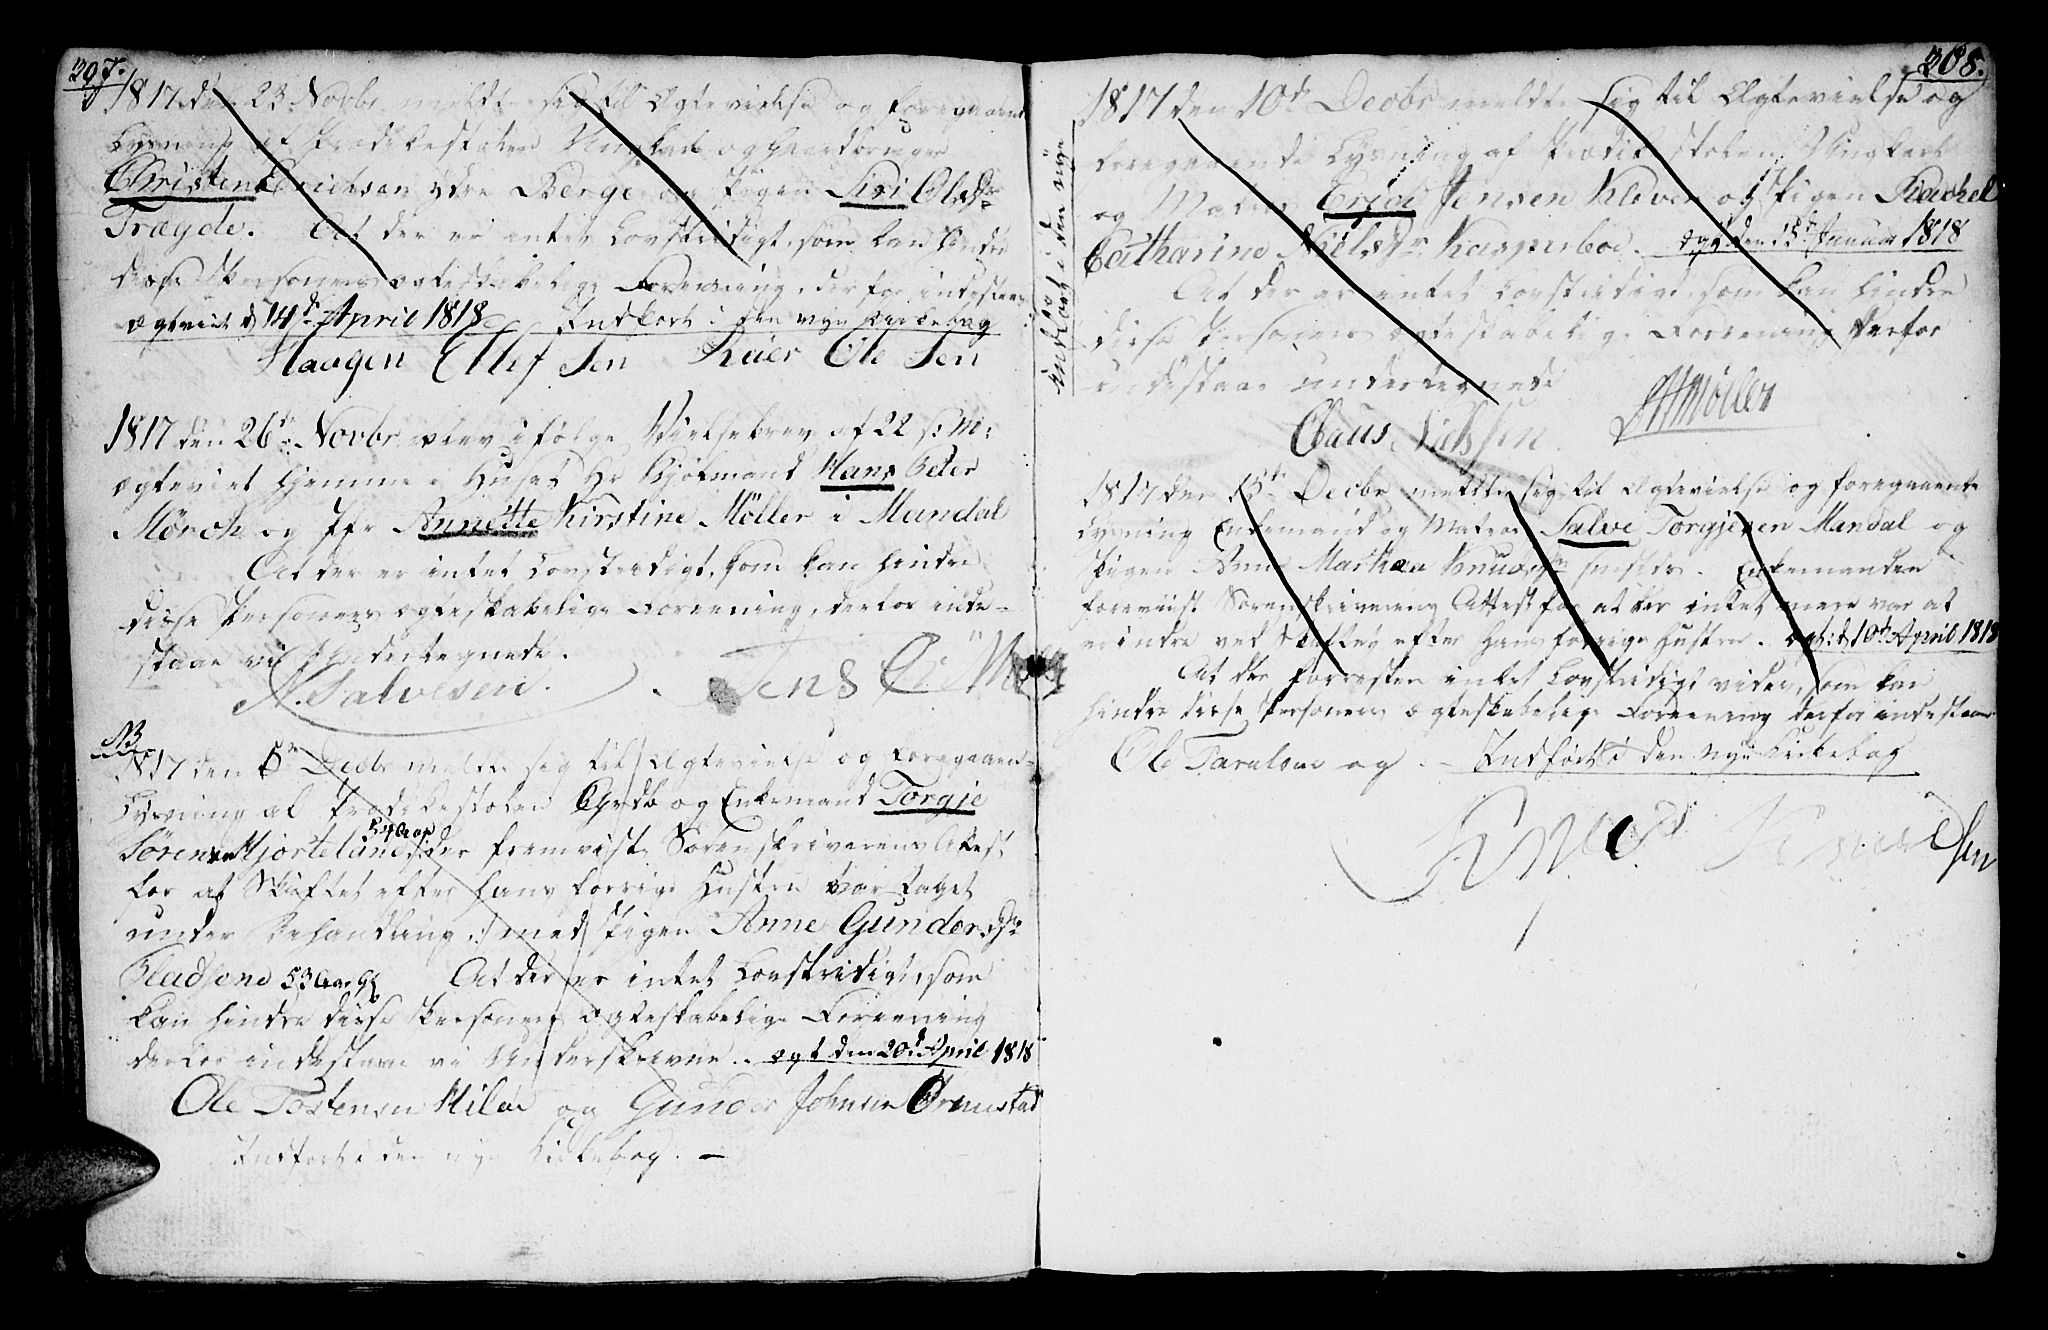 307.
1817 den 23 Novbr meldte sig til Ægtevielse og foregaaend
Lysning af Prædikestolen Ungkarl og Gaardbruger
Christen Erichsen ydre Berge og Pigen Siri Olsdr
Trægde. At der er intet Lovstridigt, som kan hindre
disse Personers ægteskabelige Foreening, derfor indestaae
Ægteviet d 14de April 1818 Indført i den nye Kirkebog
Haagen Ellefsen Reier Olesen
1817 den 26de Novbr blev ifølge Vielsebrev af 22 s: M:
ægteviet hjemme i Huset Hr Kjøbmand Hans Peter
Mörch og Jfr Annette Kirstine Möller i Mandal
At der er intet Lovstridigt, som kan hindre
disse Personers ægteskabelige Foreening, derfor inde-
staae vi Undertegnede.
N. Salvesen. Jens C.
N3
1817 den 5te Decbr meldte sig til Ægtevielse og foregaaen-
Lysning af Prædikestolen Gmdb og Enkemand Torgje
Sörensen Hjortelund der fremviste Sorenskriverens Attest
for at Skiftet efter hans forrige Hustru var taget
under Behandling :/ med Pigen Anne Gundersdr
Fladsene 53 Aar Gl At der er intet Lovstridigt, som
kan hindre disse Personers ægteskabelige Foreening
derfor indestaae vi Underskrevne. ægt den 20d April 1818
Ole Tostensen Hilen og Gunder Johnsen Ormestad
Indført i den nye Kirkebog. —
308.
1817 den 10de Decbr meldte sig til Ægtevielse og
foregaaende Lysning af Prædikestolen Ungkarl
og Matros Jensen Kleven og Pigen Rachel
Catharine Nielsdr Kasperboe. ægt den 15de Januar 1818
At der er intet Lovstridigt, som kan hindre
disse Personers ægteskabelige Foreening derfor
indestaae undertegnede
Indført i den nye
Claus Nielssen Möller
1817 den 15de Decbr meldte sig til Ægtevielse og foregaaende
Lysning Enkemand og Matros Salve Torgjersen Mandal og
Pigen Anne Marthea Knudsdr. Enkemanden
foreviist Sorenskriverens Attest for at der intet mere var at
erindre ved Skiftet efter hans forrige Hustru. ægt: d 10de April 1818
At der forresten intet Lovstridigt vides, som kan
hindre disse Personers ægteskabelige Foreening derfor indestaae
Ole Taralsen og — Indført i den nye Kirkebog
Knudsen